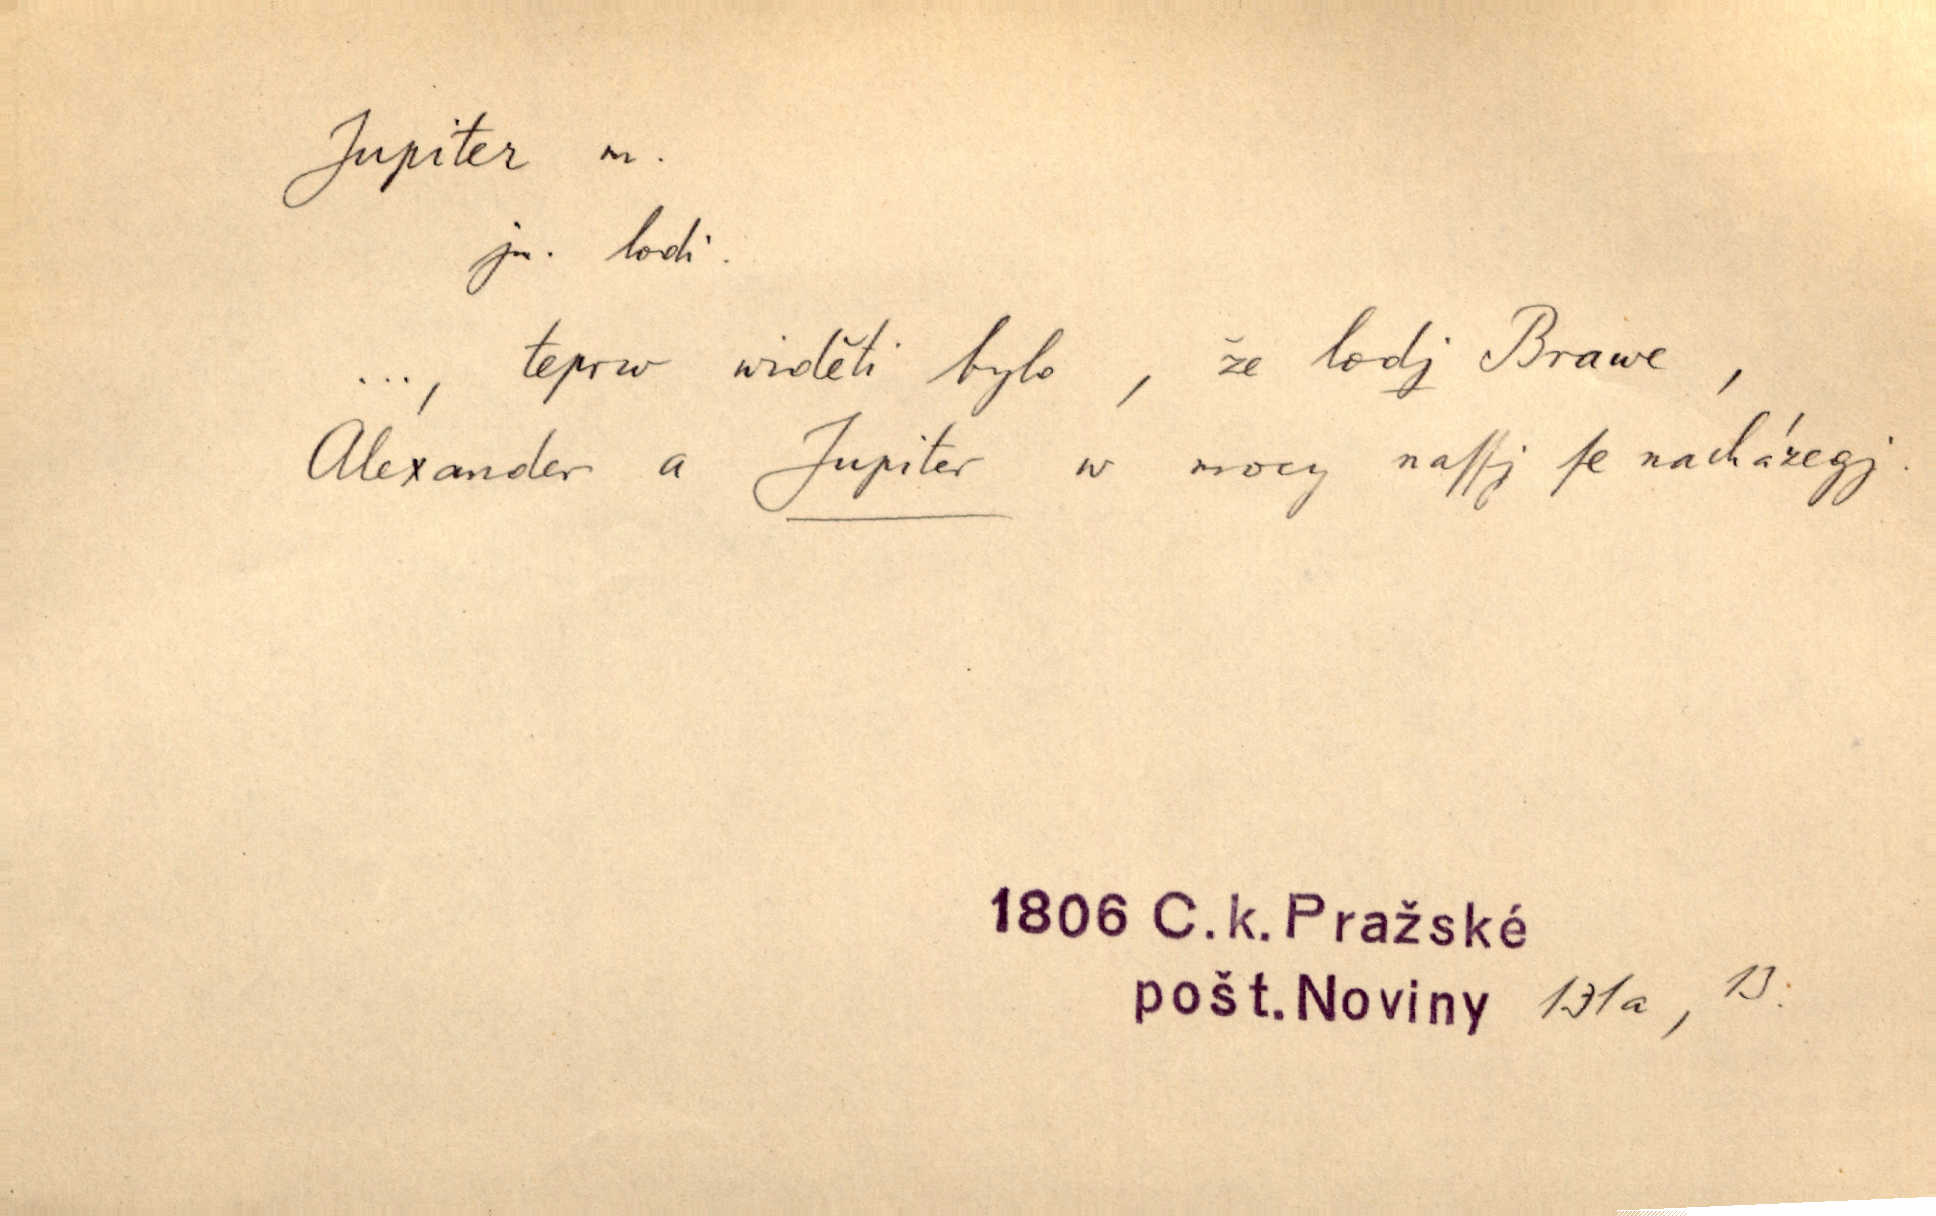 Jupiter m.
jm. lodi.
..., teprw widěti bylo, že lodj Brawe,
Alexander a Jupiter w mocy naſſj ſe nacházegj.
1806 C.k. Pražské
pošt. Noviny 131a, 13.